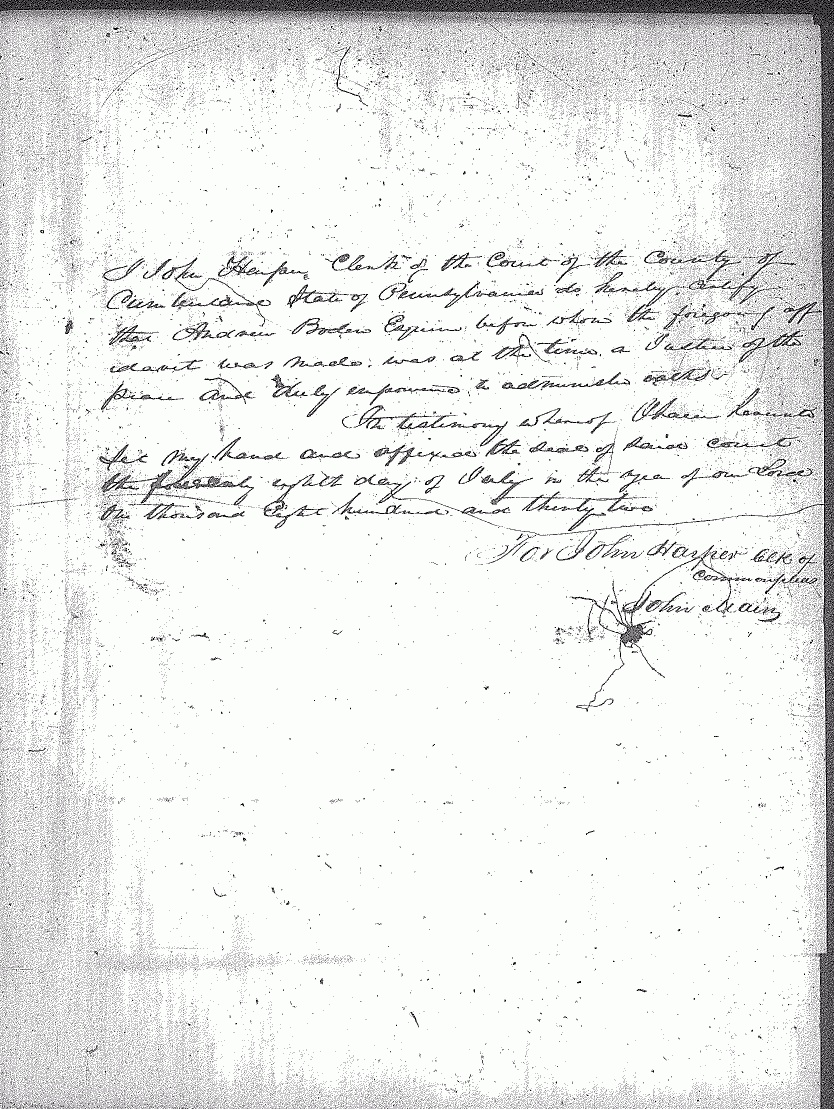 I John Harper Clerk of the Court of the County of
Cumberland State of Pennsylvania do hereby certify
that Andrew Boden Esquire before whom the foregoing aff
idavit was made, was at the time a Justice of the
peace and duly empowered to administer oaths
In testimony whereof I have hereunto
set my hand and affixed the seal of said court
the eighth day of July in the year of our Lord
one thousand Eight hundred and thirty two
For John Harper Clk of
Common pleas
John Main